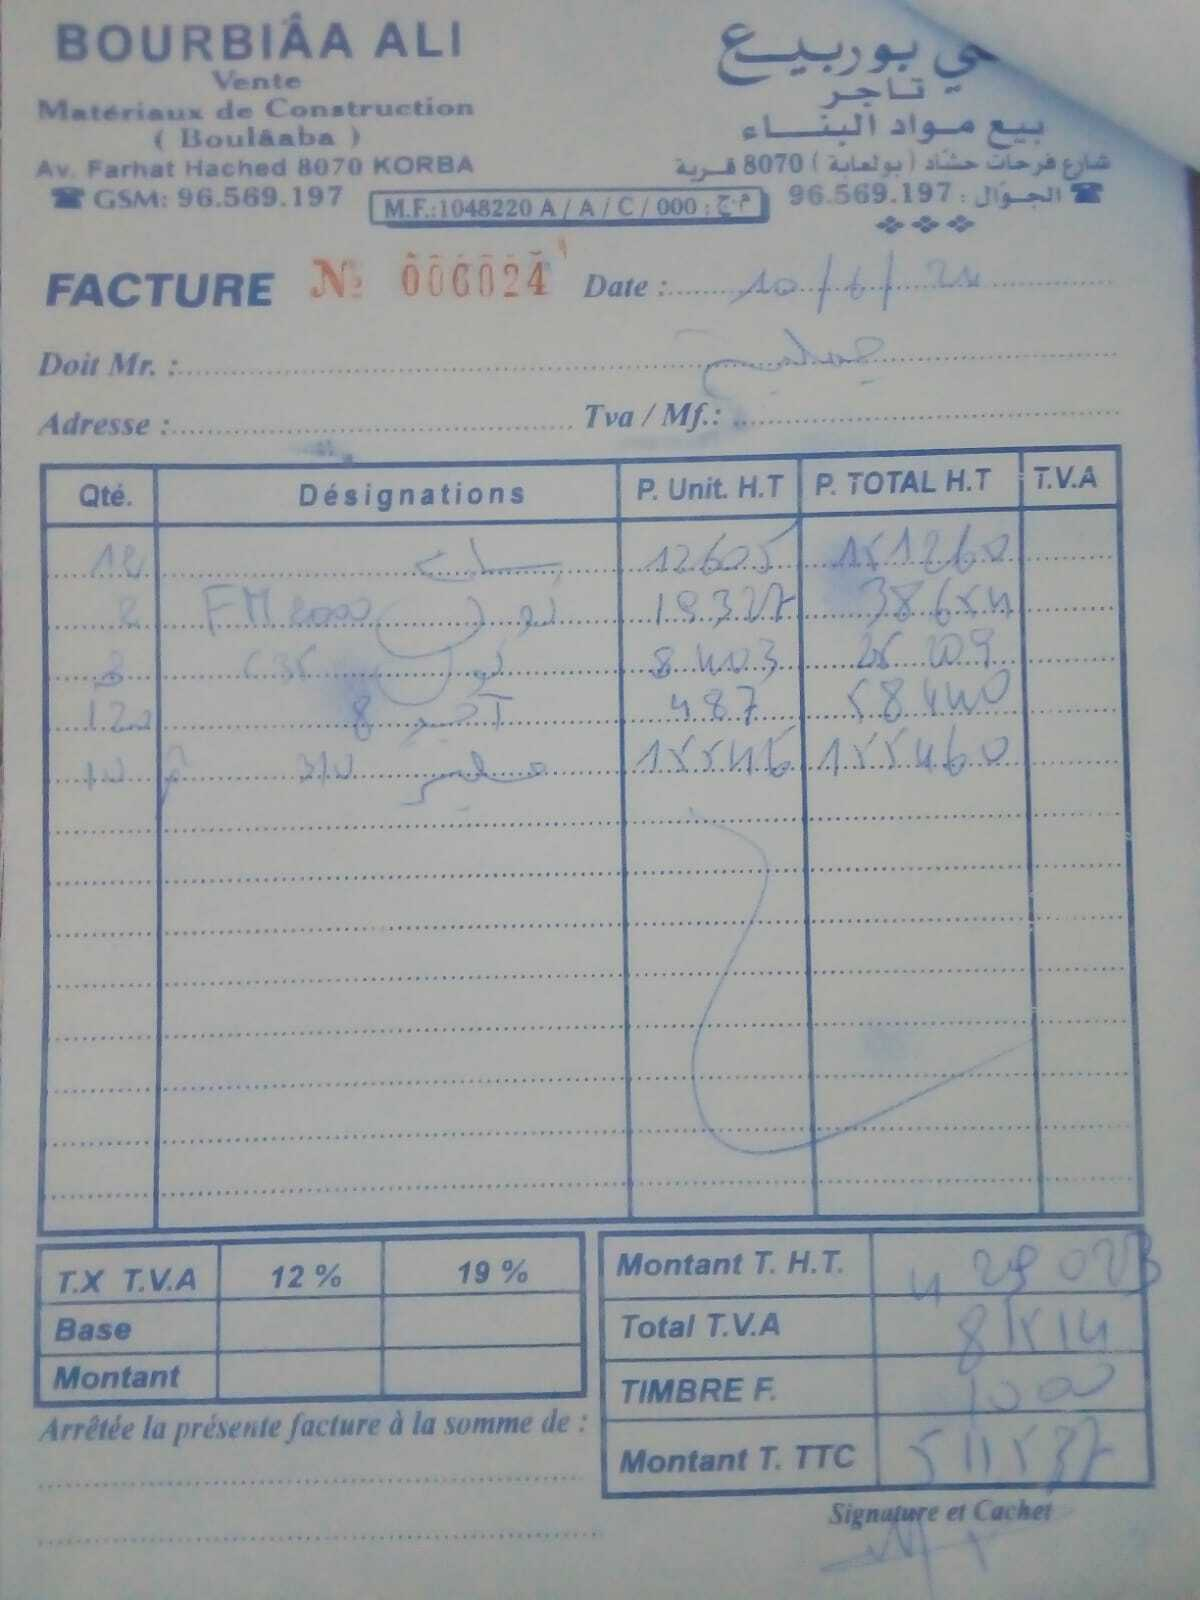 BOURBIÂA ALI
Vente
Matériaux de Construction
( Boulâaba )
Av. Farhat Hached 8070 KORBA
☎ GSM: 96.569.197
ي بوربيع
تاجر
بيع مواد البناء
شارع فرحات حشّاد (بولعابة) 8070 قربة
☎ الجوّال : 96.569.197
M.F.:1048220 A / A / C / 000 : م.ج
FACTURE № 006024 Date : 10/6/24
Doit Mr. :
Adresse : Tva / Mf.:
Qté. Désignations P. Unit. H.T P. TOTAL H.T T.V.A
12 12605 151260
2 FM 2000 19327 38654
3 C35 8403 25209
120 8 487 58440
10 310 15546 155460
T.X T.V.A 12 % 19 %
Base
Montant
Montant T. H.T. 429 023
Total T.V.A 81514
TIMBRE F. 1000
Montant T. TTC 511537
Arrêtée la présente facture à la somme de :
Signature et Cachet